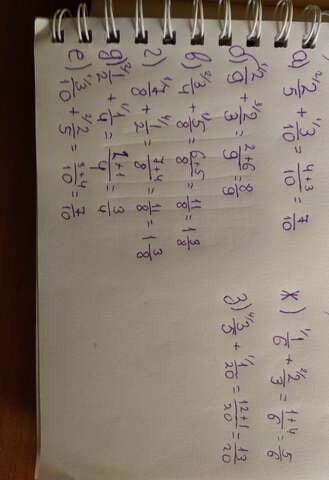 а) ²⁾2/5 + ¹⁾3/10 = 4+3/10 = 7/10
б) ¹⁾2/9 + ³⁾2/3 = 2+6/9 = 8/9
в) ²⁾3/4 + ¹⁾5/8 = 6+5/8 = 11/8 = 1 3/8
г) ¹⁾7/8 + ⁴⁾1/2 = 7+4/8 = 11/8 = 1 3/8
д) ²⁾1/2 + ¹⁾1/4 = 2+1/4 = 3/4
е) ¹⁾3/10 + ²⁾2/5 = 3+4/10 = 7/10
ж) ¹⁾1/6 + ²⁾2/3 = 1+4/6 = 5/6
з) ⁴⁾3/5 + ¹⁾1/20 = 12+1/20 = 13/20